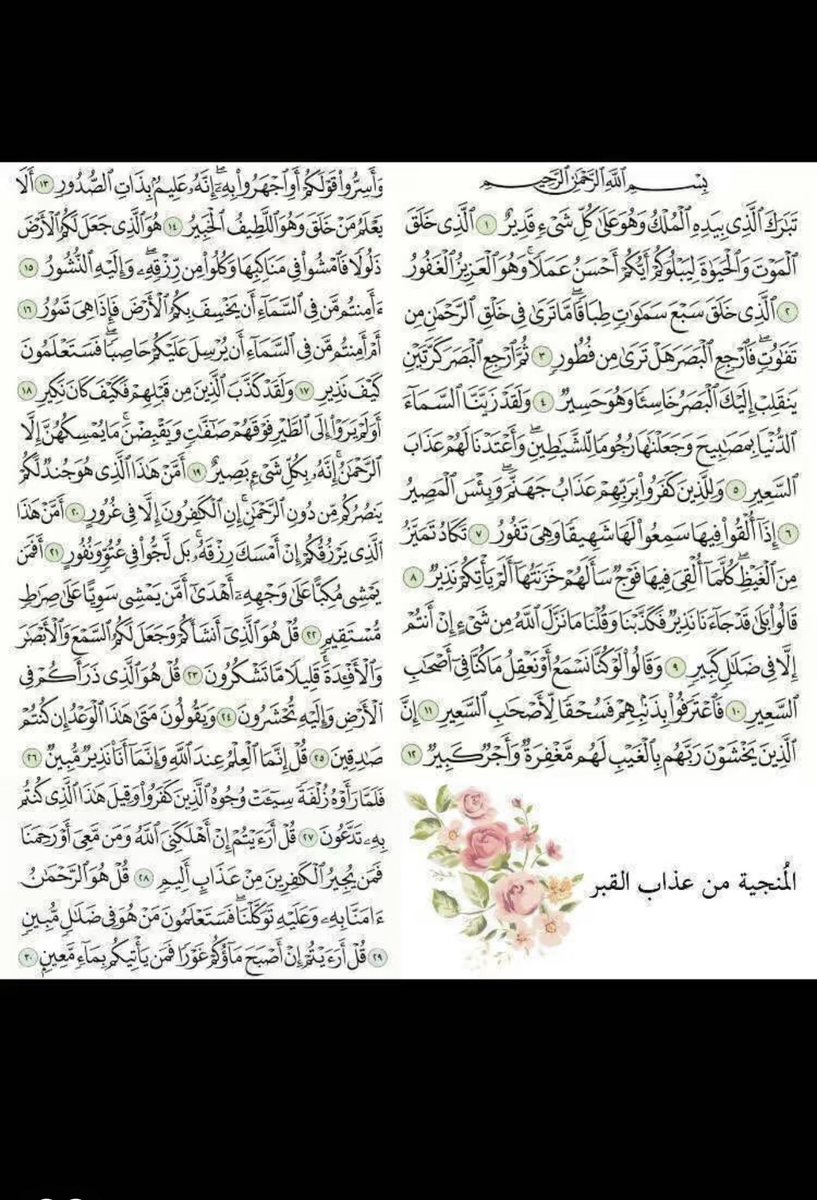 بِسْمِ ٱللَّهِ ٱلرَّحْمَٰنِ ٱلرَّحِيمِ
تَبَٰرَكَ ٱلَّذِى بِيَدِهِ ٱلْمُلْكُ وَهُوَ عَلَىٰ كُلِّ شَىْءٍ قَدِيرٌ ١ ٱلَّذِى خَلَقَ
ٱلْمَوْتَ وَٱلْحَيَوٰةَ لِيَبْلُوَكُمْ أَيُّكُمْ أَحْسَنُ عَمَلًا ۚ وَهُوَ ٱلْعَزِيزُ ٱلْغَفُورُ
٢ ٱلَّذِى خَلَقَ سَبْعَ سَمَٰوَٰتٍ طِبَاقًا ۖ مَّا تَرَىٰ فِى خَلْقِ ٱلرَّحْمَٰنِ مِن
تَفَٰوُتٍ ۖ فَٱرْجِعِ ٱلْبَصَرَ هَلْ تَرَىٰ مِن فُطُورٍ ٣ ثُمَّ ٱرْجِعِ ٱلْبَصَرَ كَرَّتَيْنِ
يَنقَلِبْ إِلَيْكَ ٱلْبَصَرُ خَاسِئًا وَهُوَ حَسِيرٌ ٤ وَلَقَدْ زَيَّنَّا ٱلسَّمَآءَ
ٱلدُّنْيَا بِمَصَٰبِيحَ وَجَعَلْنَٰهَا رُجُومًا لِّلشَّيَٰطِينِ ۖ وَأَعْتَدْنَا لَهُمْ عَذَابَ
ٱلسَّعِيرِ ٥ وَلِلَّذِينَ كَفَرُوا۟ بِرَبِّهِمْ عَذَابُ جَهَنَّمَ ۖ وَبِئْسَ ٱلْمَصِيرُ
٦ إِذَآ أُلْقُوا۟ فِيهَا سَمِعُوا۟ لَهَا شَهِيقًا وَهِىَ تَفُورُ ٧ تَكَادُ تَمَيَّزُ
مِنَ ٱلْغَيْظِ ۖ كُلَّمَآ أُلْقِىَ فِيهَا فَوْجٌ سَأَلَهُمْ خَزَنَتُهَآ أَلَمْ يَأْتِكُمْ نَذِيرٌ ٨
قَالُوا۟ بَلَىٰ قَدْ جَآءَنَا نَذِيرٌ فَكَذَّبْنَا وَقُلْنَا مَا نَزَّلَ ٱللَّهُ مِن شَىْءٍ إِنْ أَنتُمْ
إِلَّا فِى ضَلَٰلٍ كَبِيرٍ ٩ وَقَالُوا۟ لَوْ كُنَّا نَسْمَعُ أَوْ نَعْقِلُ مَا كُنَّا فِىٓ أَصْحَٰبِ
ٱلسَّعِيرِ ١٠ فَٱعْتَرَفُوا۟ بِذَنۢبِهِمْ فَسُحْقًا لِّأَصْحَٰبِ ٱلسَّعِيرِ ١١ إِنَّ
ٱلَّذِينَ يَخْشَوْنَ رَبَّهُم بِٱلْغَيْبِ لَهُم مَّغْفِرَةٌ وَأَجْرٌ كَبِيرٌ ١٢
المُنجية من عذاب القبر
وَأَسِرُّوا۟ قَوْلَكُمْ أَوِ ٱجْهَرُوا۟ بِهِۦٓ ۖ إِنَّهُۥ عَلِيمٌۢ بِذَاتِ ٱلصُّدُورِ ١٣ أَلَا
يَعْلَمُ مَنْ خَلَقَ وَهُوَ ٱللَّطِيفُ ٱلْخَبِيرُ ١٤ هُوَ ٱلَّذِى جَعَلَ لَكُمُ ٱلْأَرْضَ
ذَلُولًا فَٱمْشُوا۟ فِى مَنَاكِبِهَا وَكُلُوا۟ مِن رِّزْقِهِۦ ۖ وَإِلَيْهِ ٱلنُّشُورُ ١٥
ءَأَمِنتُم مَّن فِى ٱلسَّمَآءِ أَن يَخْسِفَ بِكُمُ ٱلْأَرْضَ فَإِذَا هِىَ تَمُورُ ١٦
أَمْ أَمِنتُم مَّن فِى ٱلسَّمَآءِ أَن يُرْسِلَ عَلَيْكُمْ حَاصِبًا ۖ فَسَتَعْلَمُونَ
كَيْفَ نَذِيرِ ١٧ وَلَقَدْ كَذَّبَ ٱلَّذِينَ مِن قَبْلِهِمْ فَكَيْفَ كَانَ نَكِيرِ ١٨
أَوَلَمْ يَرَوْا۟ إِلَى ٱلطَّيْرِ فَوْقَهُمْ صَٰٓفَّٰتٍ وَيَقْبِضْنَ ۚ مَا يُمْسِكُهُنَّ إِلَّا
ٱلرَّحْمَٰنُ ۚ إِنَّهُۥ بِكُلِّ شَىْءٍۭ بَصِيرٌ ١٩ أَمَّنْ هَٰذَا ٱلَّذِى هُوَ جُندٌ لَّكُمْ
يَنصُرُكُم مِّن دُونِ ٱلرَّحْمَٰنِ ۚ إِنِ ٱلْكَٰفِرُونَ إِلَّا فِى غُرُورٍ ٢٠ أَمَّنْ هَٰذَا
ٱلَّذِى يَرْزُقُكُمْ إِنْ أَمْسَكَ رِزْقَهُۥ ۚ بَل لَّجُّوا۟ فِى عُتُوٍّ وَنُفُورٍ ٢١ أَفَمَن
يَمْشِى مُكِبًّا عَلَىٰ وَجْهِهِۦٓ أَهْدَىٰٓ أَمَّن يَمْشِى سَوِيًّا عَلَىٰ صِرَٰطٍ
مُّسْتَقِيمٍ ٢٢ قُلْ هُوَ ٱلَّذِىٓ أَنشَأَكُمْ وَجَعَلَ لَكُمُ ٱلسَّمْعَ وَٱلْأَبْصَٰرَ
وَٱلْأَفْـِٔدَةَ ۖ قَلِيلًا مَّا تَشْكُرُونَ ٢٣ قُلْ هُوَ ٱلَّذِى ذَرَأَكُمْ فِى
ٱلْأَرْضِ وَإِلَيْهِ تُحْشَرُونَ ٢٤ وَيَقُولُونَ مَتَىٰ هَٰذَا ٱلْوَعْدُ إِن كُنتُمْ
صَٰدِقِينَ ٢٥ قُلْ إِنَّمَا ٱلْعِلْمُ عِندَ ٱللَّهِ وَإِنَّمَآ أَنَا۠ نَذِيرٌ مُّبِينٌ ٢٦
فَلَمَّا رَأَوْهُ زُلْفَةً سِيٓـَٔتْ وُجُوهُ ٱلَّذِينَ كَفَرُوا۟ وَقِيلَ هَٰذَا ٱلَّذِى كُنتُم
بِهِۦ تَدَّعُونَ ٢٧ قُلْ أَرَءَيْتُمْ إِنْ أَهْلَكَنِىَ ٱللَّهُ وَمَن مَّعِىَ أَوْ رَحِمَنَا
فَمَن يُجِيرُ ٱلْكَٰفِرِينَ مِنْ عَذَابٍ أَلِيمٍ ٢٨ قُلْ هُوَ ٱلرَّحْمَٰنُ
ءَامَنَّا بِهِۦ وَعَلَيْهِ تَوَكَّلْنَا ۖ فَسَتَعْلَمُونَ مَنْ هُوَ فِى ضَلَٰلٍ مُّبِينٍ
٢٩ قُلْ أَرَءَيْتُمْ إِنْ أَصْبَحَ مَآؤُكُمْ غَوْرًا فَمَن يَأْتِيكُم بِمَآءٍ مَّعِينٍۭ ٣٠